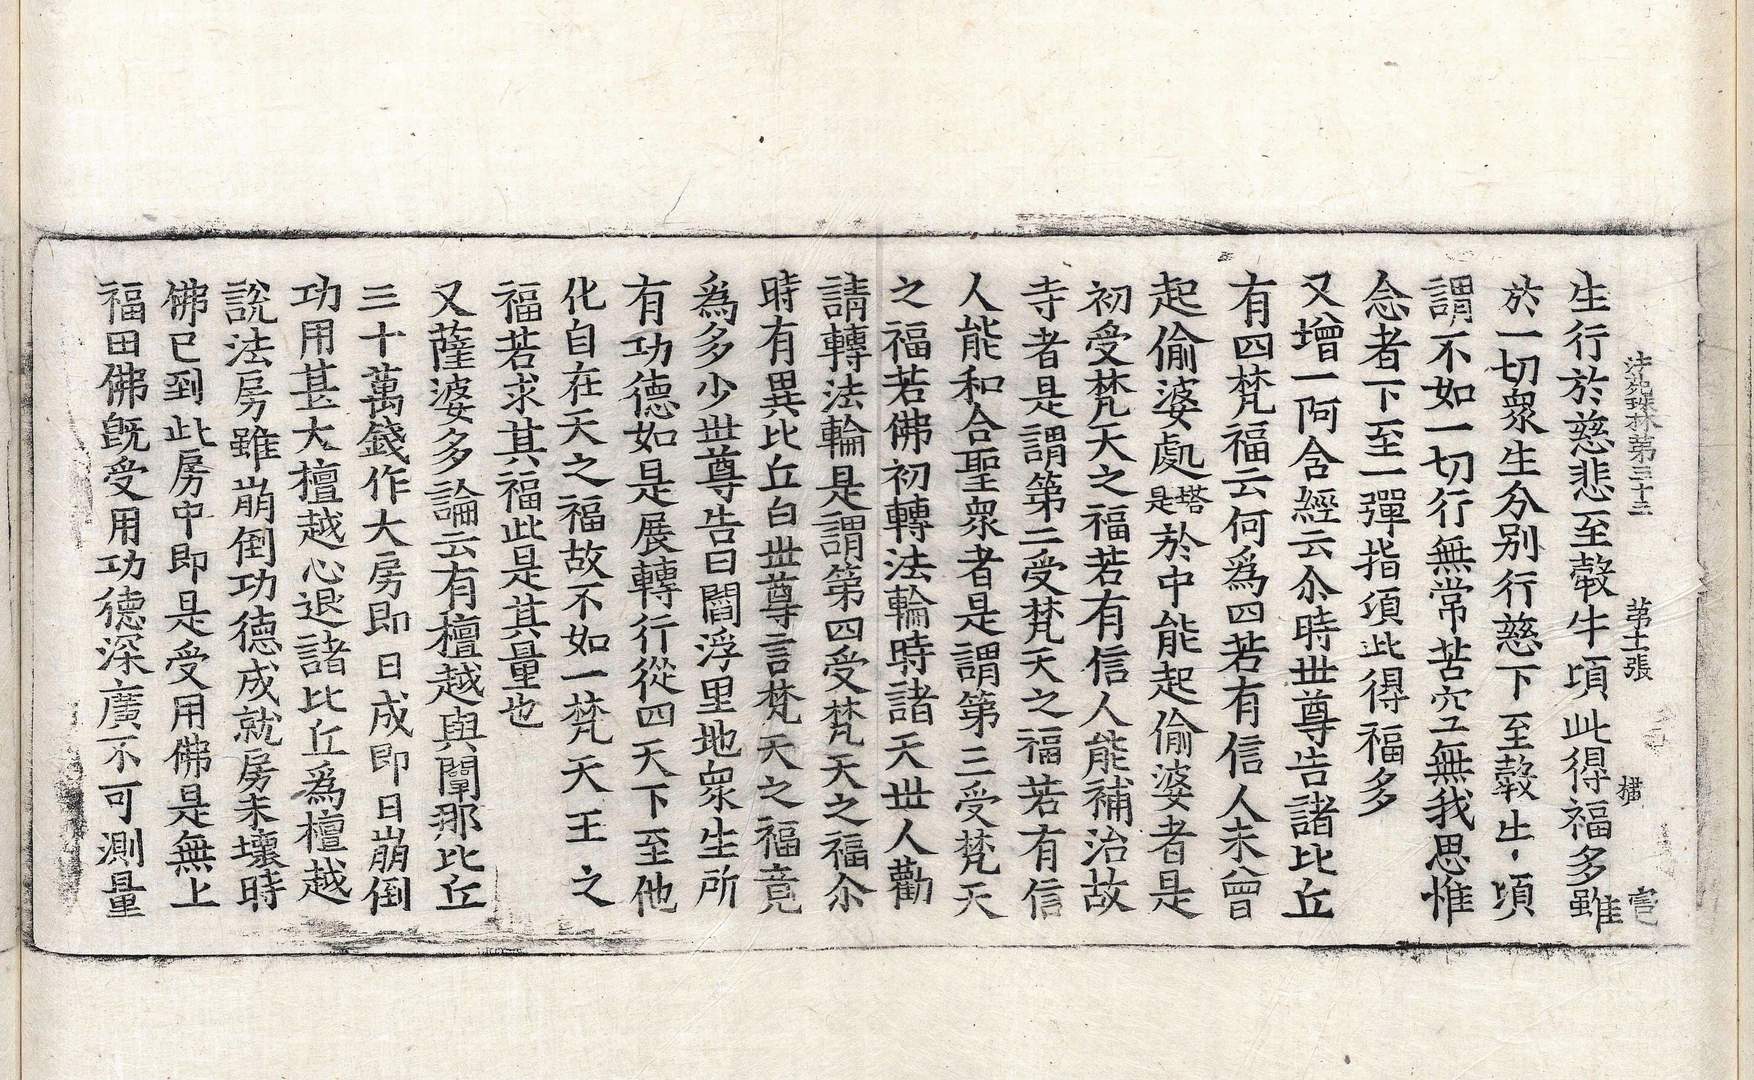 法苑珠林第三十三 第十二張 橫
生行於慈悲至𤛓牛頃此得福多雖
於一切衆生分别行慈下至𤛓牛頃
謂不如一切行無常苦空無我思惟
念者下至一彈指頃此得福多
又增一阿含經云尒時世尊告諸比丘
有四梵福云何爲四若有信人未曾
起偷婆處塔是於中能起偷婆者是
初受梵天之福若有信人能補治故
寺者是謂第二受梵天之福若有信
人能和合聖衆者是謂第三受梵天
之福若佛初轉法輪時諸天世人勸
請轉法輪是謂第四受梵天之福尒
時有異比丘白世尊言梵天之福竟
爲多少世尊告曰閻浮里地衆生所
有功德如是展轉行從四天下至他
化自在天之福故不如一梵天王之
福若求其福此是其量也
又薩婆多論云有檀越與闡那比丘
三十萬錢作大房即日成即日崩倒
功用甚大檀越心退諸比丘爲檀越
說法房雖崩倒功德成就房未壞時
佛已到此房中即是受用佛是無上
福田佛旣受用功德深廣不可測量